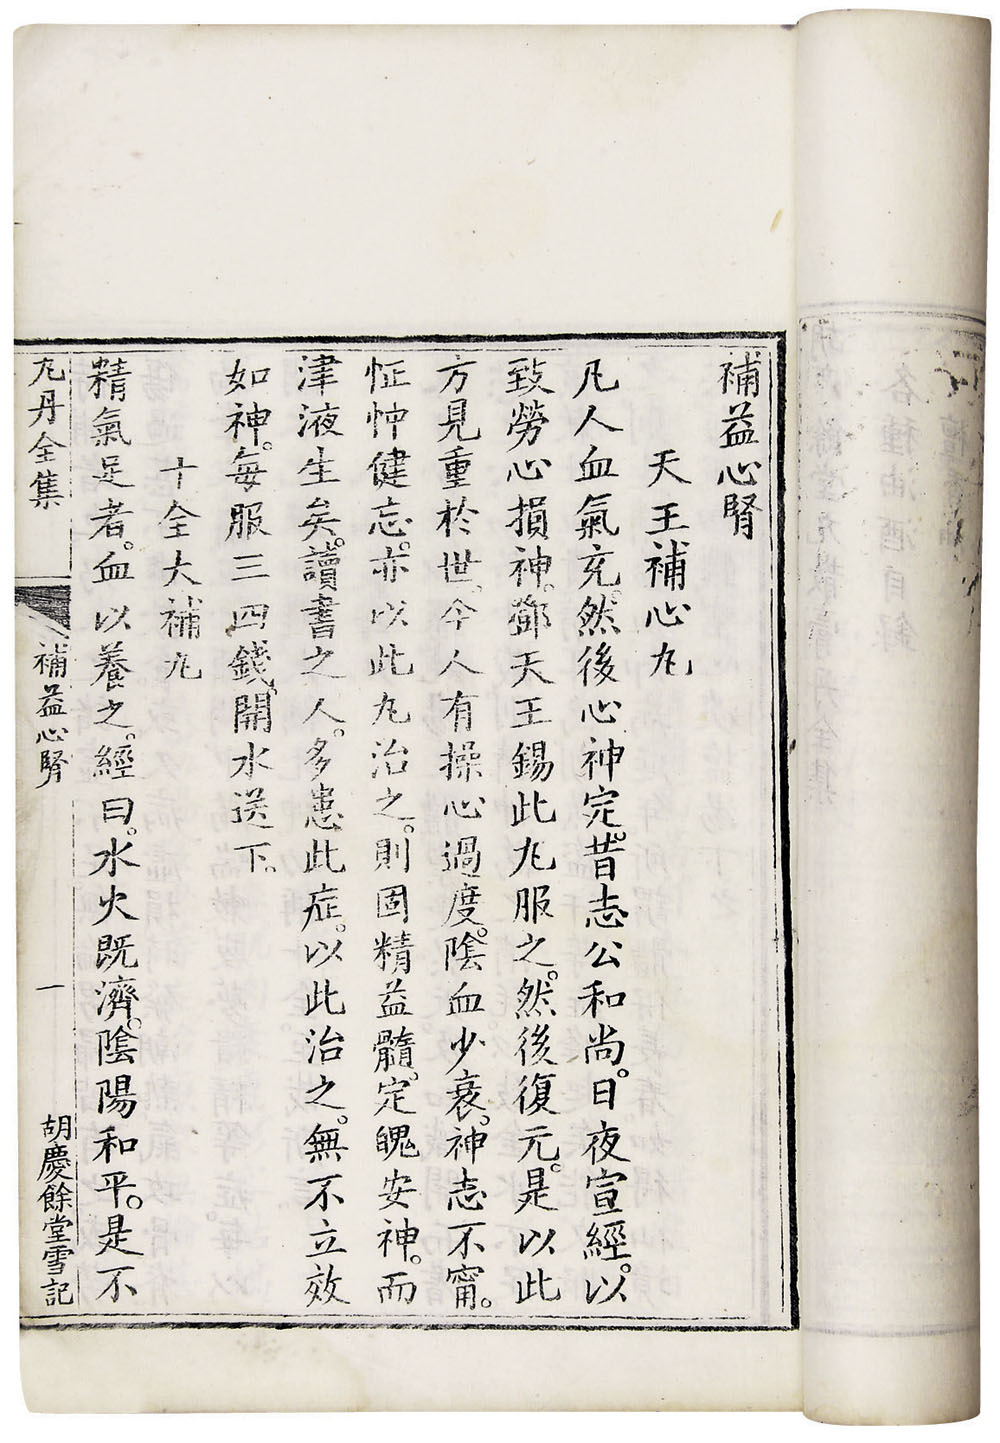 補益心腎
天王補心丸
凡人血氣充。然後心神定。昔志公和尚。日夜宣經。以
致勞心損神。鄧天王錫此丸服之。然後復元。是以此
方見重於世。今人有操心過度。陰血少衰。神志不甯。
怔忡健忘。亦以此丸治之。則固精益髓。定魄安神。而
津液生矣。讀書之人。多患此症。以此治之。無不立效
如神。每服三四錢。開水送下。
十全大補丸
精氣足者。血以養之。經曰。水火既濟。陰陽和平。是不
丸丹全集
補益心腎
一
胡慶餘堂雪記